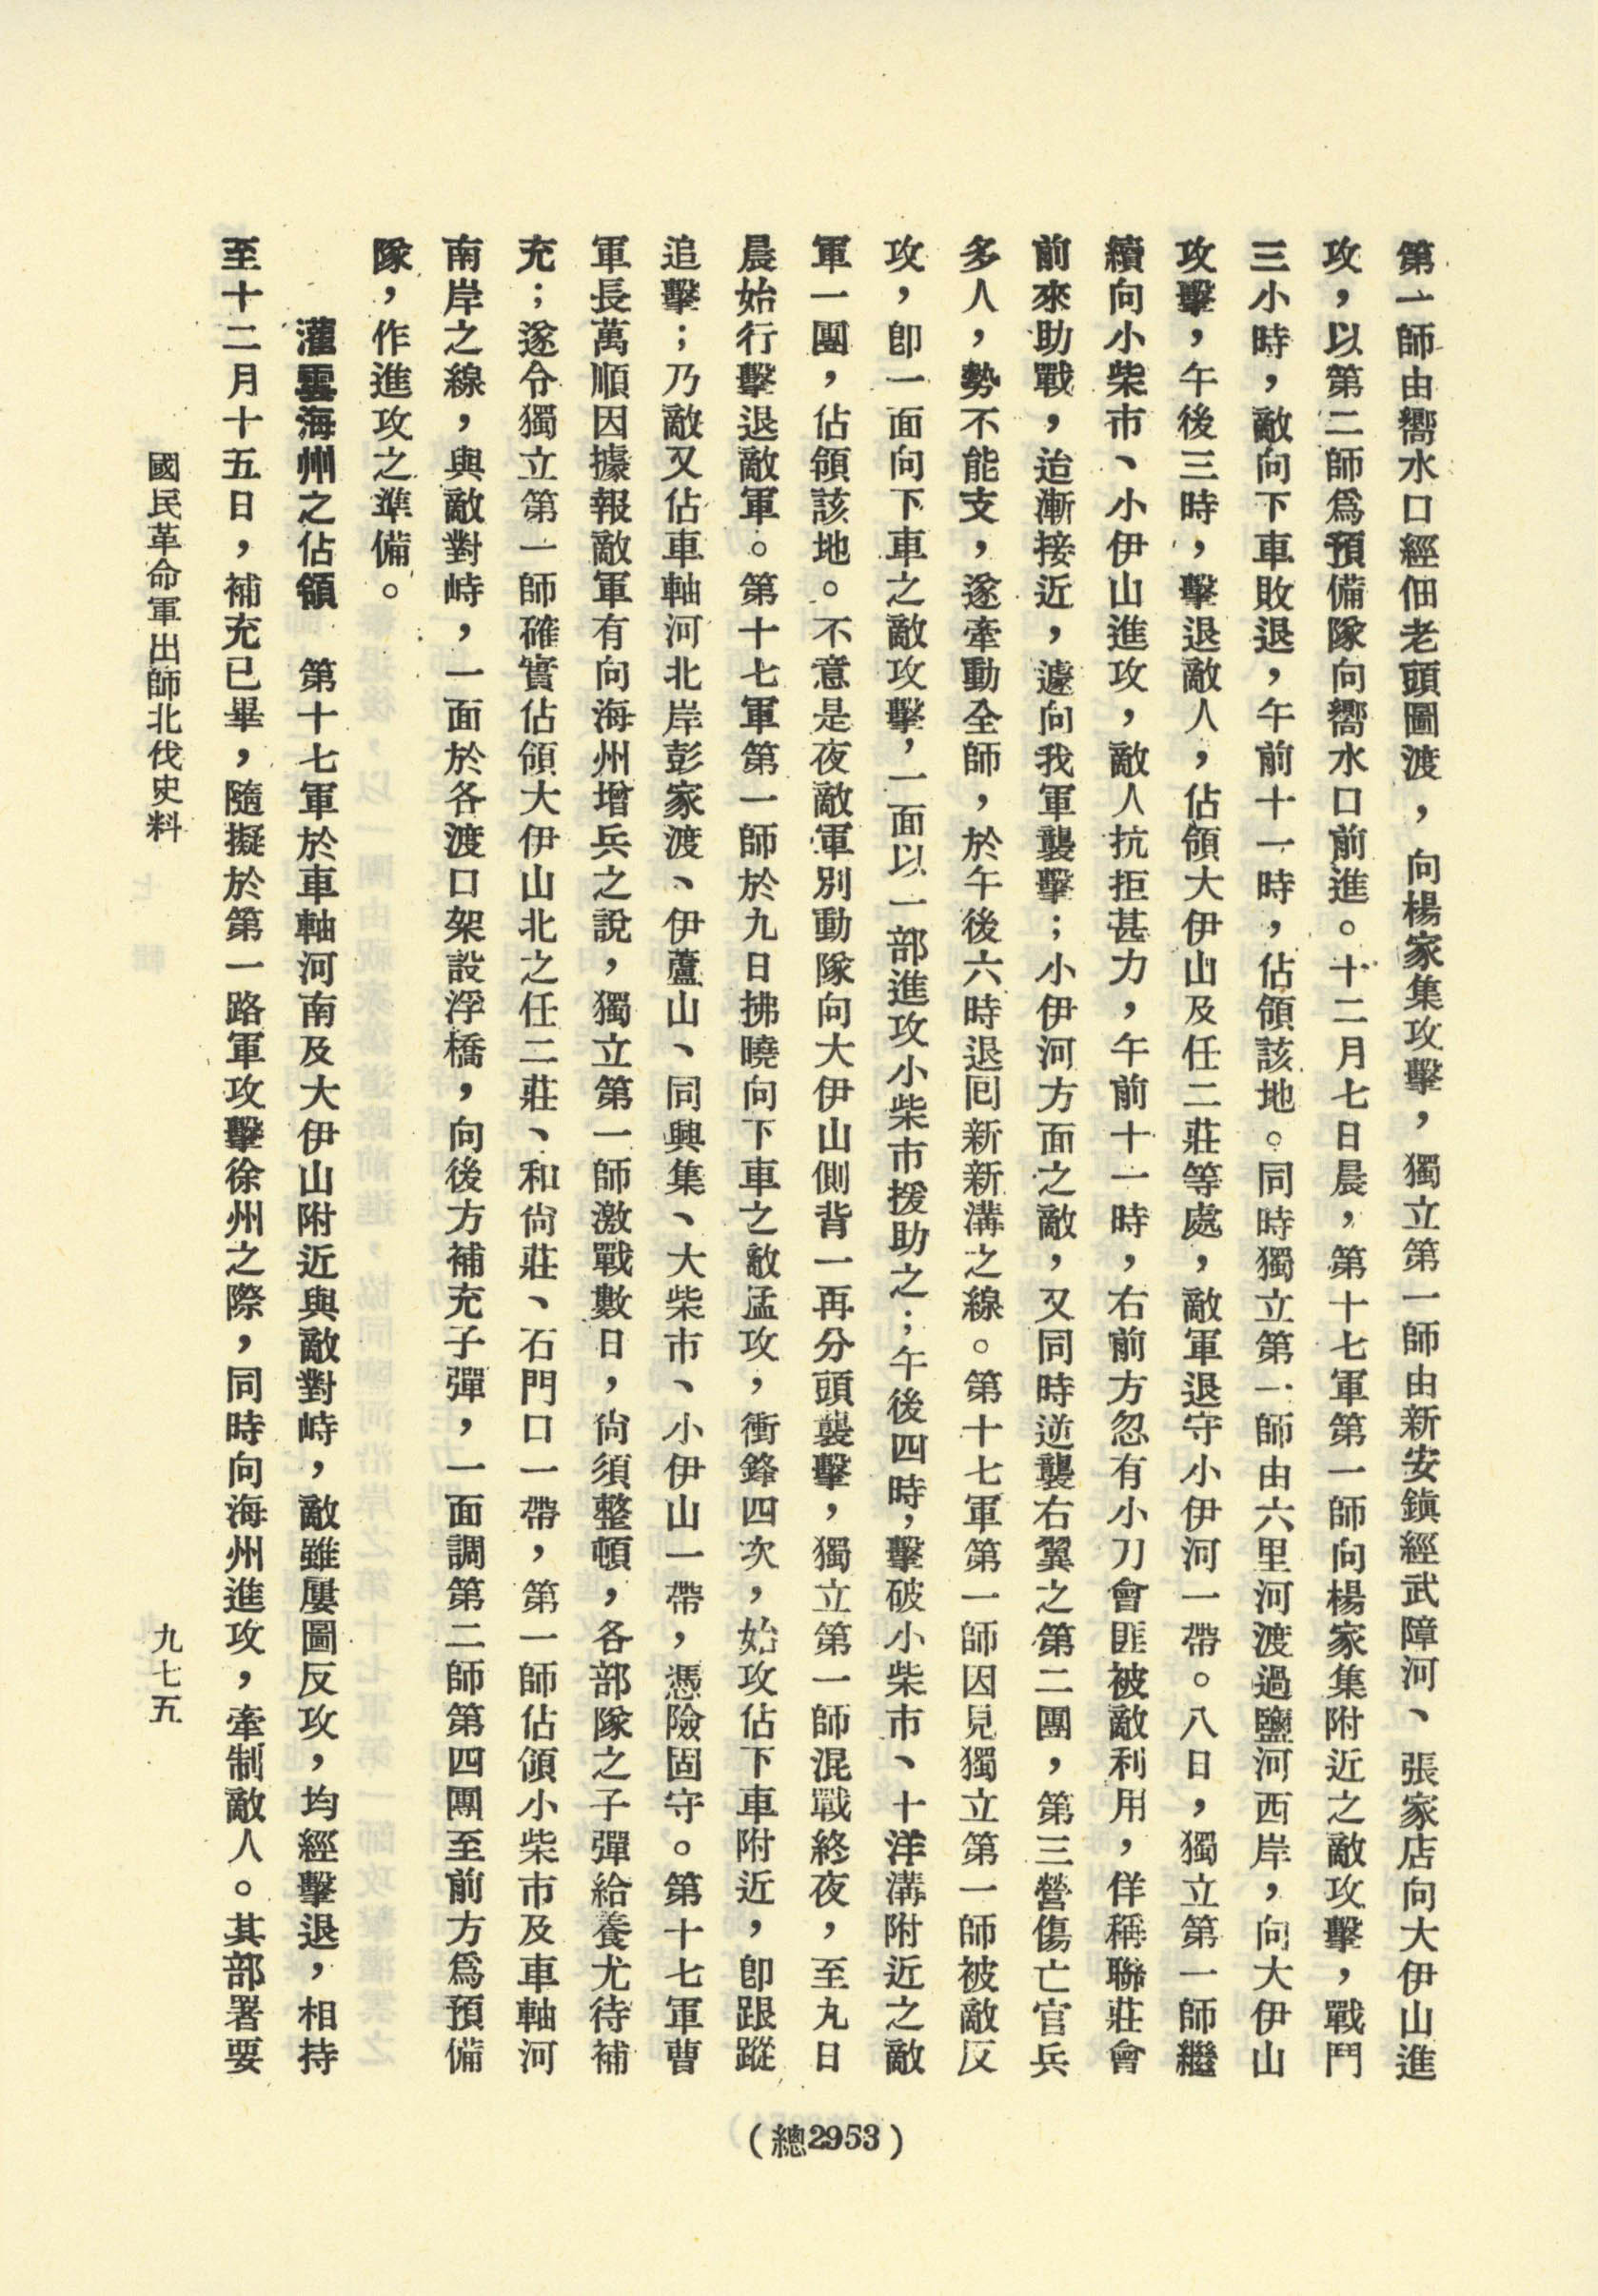 第一師由嚮水口經佃老頭圖渡，向楊家集攻擊，獨立第一師由新安鎮經武障河、張家店向大伊山進
攻，以第二師爲預備隊向嚮水口前進。十二月七日晨，第十七軍第一師向楊家集附近之敵攻擊，戰鬥
三小時，敵向下車敗退，午前十一時，佔領該地。同時獨立第一師由六里河渡過鹽河西岸，向大伊山
攻擊，午後三時，擊退敵人，佔領大伊山及任二莊等處，敵軍退守小伊河一帶。八日，獨立第一師繼
續向小柴市、小伊山進攻，敵人抗拒甚力，午前十一時，右前方忽有小刀會匪被敵利用，佯稱聯莊會
前來助戰，迨漸接近，遽向我軍襲擊；小伊河方面之敵，又同時逆襲右翼之第二團，第三營傷亡官兵
多人，勢不能支，遂牽動全師，於午後六時退囘新新溝之線。第十七軍第一師因見獨立第一師被敵反
攻，卽一面向下車之敵攻擊，一面以一部進攻小柴市援助之；午後四時，擊破小柴市、十洋溝附近之敵
軍一團，佔領該地。不意是夜敵軍別動隊向大伊山側背一再分頭襲擊，獨立第一師混戰終夜，至九日
晨始行擊退敵軍。第十七軍第一師於九日拂曉向下車之敵猛攻，衝鋒四次，始攻佔下車附近，卽跟蹤
追擊；乃敵又佔車軸河北岸彭家渡、伊蘆山、同興集、大柴市、小伊山一帶，憑險固守。第十七軍曹
軍長萬順因據報敵軍有向海州增兵之說，獨立第一師激戰數日，尙須整頓，各部隊之子彈給養尤待補
充；遂令獨立第一師確實佔領大伊山北之任二莊、和尙莊、石門口一帶，第一師佔領小柴市及車軸河
南岸之線，與敵對峙，一面於各渡口架設浮橋，向後方補充子彈，一面調第二師第四團至前方爲預備
隊，作進攻之準備。
灌雲海州之佔領　第十七軍於車軸河南及大伊山附近與敵對峙，敵雖屢圖反攻，均經擊退，相持
至十二月十五日，補充已畢，隨擬於第一路軍攻擊徐州之際，同時向海州進攻，牽制敵人。其部署要
國民革命軍出師北伐史料
九七五
（總2953）